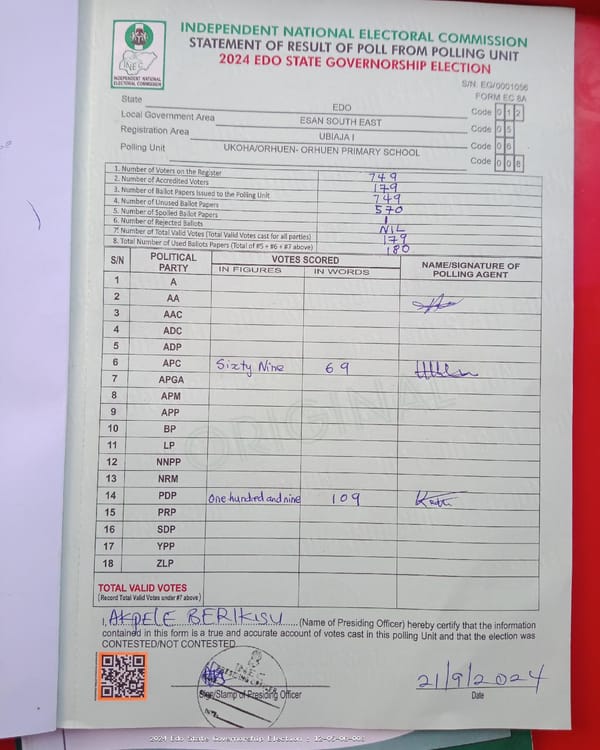 INDEPENDENT NATIONAL ELECTORAL COMMISSION
STATEMENT OF RESULT OF POLL FROM POLLING UNIT
2024 EDO STATE GOVERNORSHIP ELECTION
INEC
INDEPENDENT NATIONAL
ELECTORAL COMMISSION
S/N. EG/0001056
FORM EC 8A
State EDO Code 0 1 2
Local Government Area ESAN SOUTH EAST Code 0 5
Registration Area UBIAJA I Code 0 6
Polling Unit UKOHA/ORHUEN- ORHUEN PRIMARY SCHOOL Code 0 0 8
1. Number of Voters on the Register 749
2. Number of Accredited Voters 179
3. Number of Ballot Papers Issued to the Polling Unit 749
4. Number of Unused Ballot Papers 570
5. Number of Spoiled Ballot Papers 1
6. Number of Rejected Ballots NIL
7. Number of Total Valid Votes (Total Valid Votes cast for all parties) 179
8. Total Number of Used Ballots Papers (Total of #5 + #6 + #7 above) 180
S/N POLITICAL PARTY VOTES SCORED NAME/SIGNATURE OF POLLING AGENT
IN FIGURES IN WORDS
1 A
2 AA
3 AAC
4 ADC
5 ADP
6 APC Sixty Nine 69
7 APGA
8 APM
9 APP
10 BP
11 LP
12 NNPP
13 NRM
14 PDP One hundred and nine 109
15 PRP
16 SDP
17 YPP
18 ZLP
ORIGINAL
TOTAL VALID VOTES
(Record Total Valid Votes under #7 above)
I, AKPELE BERIKISU (Name of Presiding Officer) hereby certify that the information
contained in this form is a true and accurate account of votes cast in this polling Unit and that the election was
CONTESTED/NOT CONTESTED.
Sign/Stamp of Presiding Officer
21/9/2024
Date
2024 Edo State Governorship Election : 12-05-06-008